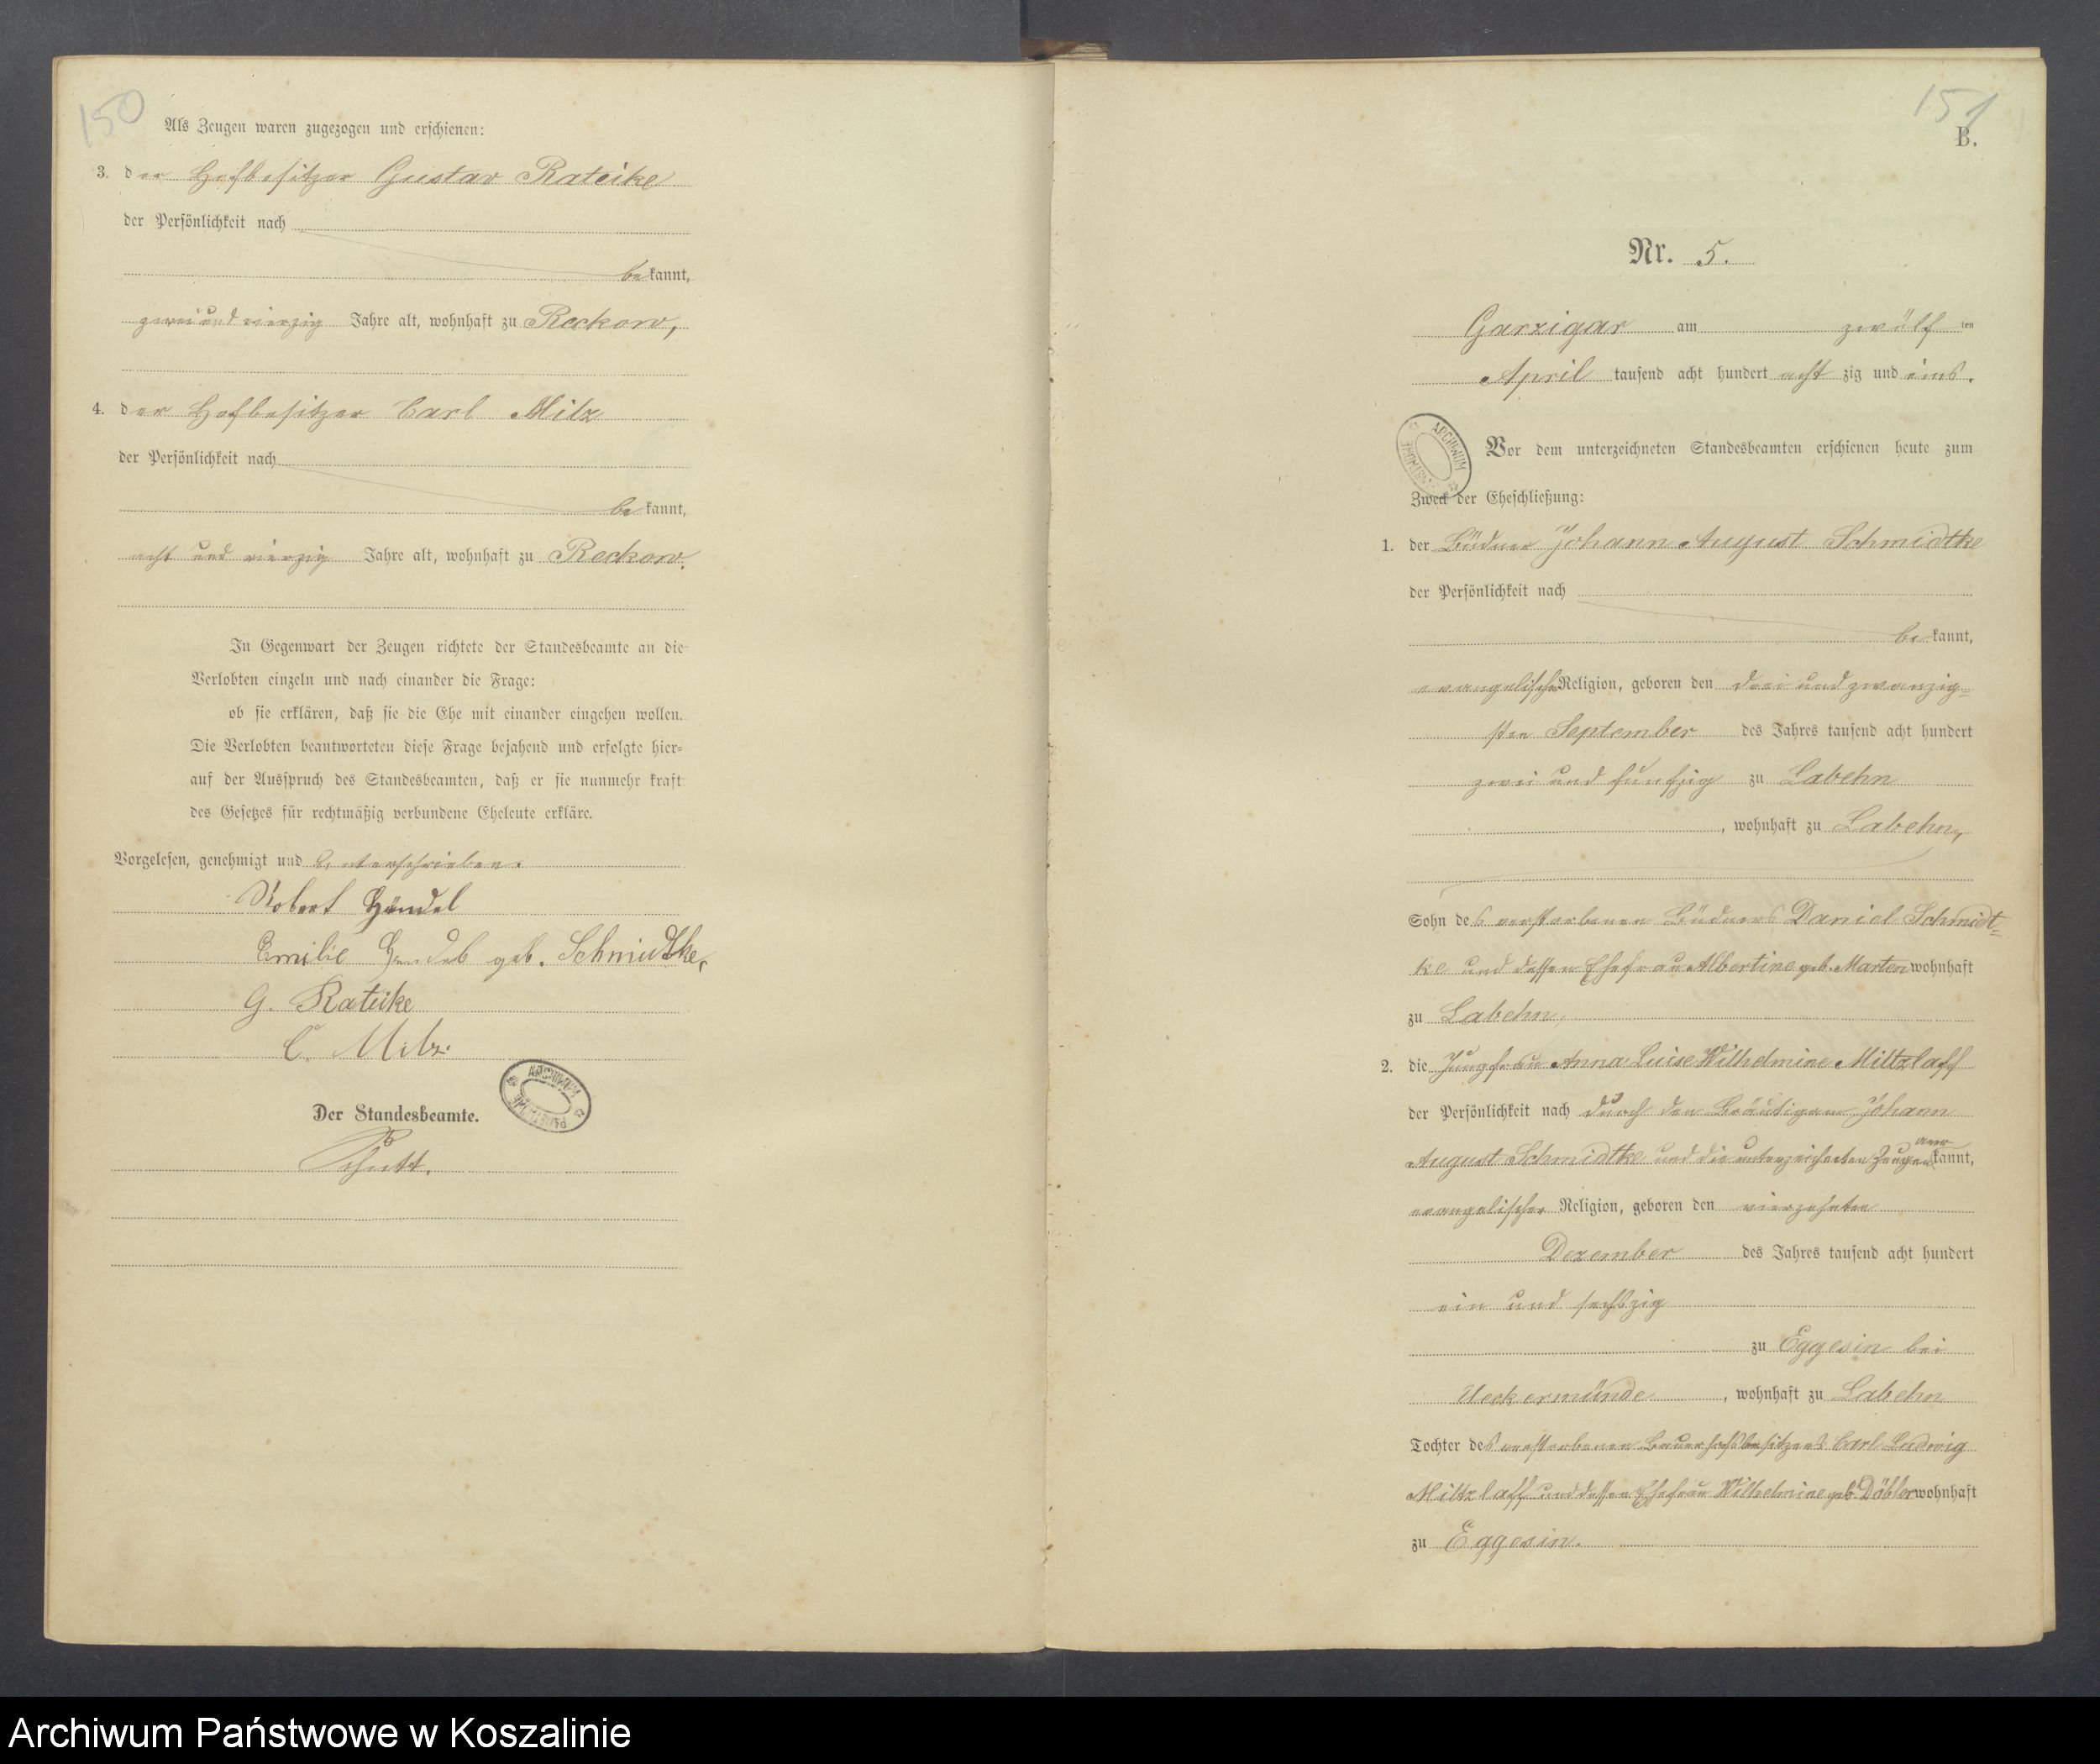 150
Als Zeugen waren zugezogen und erschienen:
3. der Hofbesitzer Gustav Rateike
der Persönlichkeit nach
bekannt,
zwei und vierzig Jahre alt, wohnhaft zu Reckow,
4. der Hofbesitzer Carl Milz
der Persönlichkeit nach
bekannt,
acht und vierzig Jahre alt, wohnhaft zu Reckow.
In Gegenwart der Zeugen richtete der Standesbeamte an die
Verlobten einzeln und nach einander die Frage:
ob sie erklären, daß sie die Ehe mit einander eingehen wollen.
Die Verlobten beantworteten diese Frage bejahend und erfolgte hier=
auf der Ausspruch des Standesbeamten, daß er sie nunmehr kraft
des Gesetzes für rechtmäßig verbundene Eheleute erkläre.
Vorgelesen, genehmigt und unterschrieben.
Robert
Emilie geb. Schmidtke,
G. Rateike
C. Milz.
ARCHIWUM
PAŃSTWOWE
Der Standesbeamte.
151
B.
Nr. 5.
Garzigar am zwölften
April tausend acht hundert achtzig und eins.
ARCHIWUM
PAŃSTWOWE
Vor dem unterzeichneten Standesbeamten erschienen heute zum
Zweck der Eheschließung:
1. der Büdner Johann August Schmidtke
der Persönlichkeit nach
bekannt,
evangelischer Religion, geboren den drei und zwanzig=
sten September des Jahres tausend acht hundert
zwei und funfzig zu Labehn
, wohnhaft zu Labehn,
Sohn des verstorbenen Büdners Daniel Schmidt=
ke und dessen Ehefrau Albertine geb. Marten wohnhaft
zu Labehn,
2. die Jungfrau Anna Luise Wilhelmine Miltzlaff
der Persönlichkeit nach durch den Bräutigam Johann
August Schmidtke und die unterzeichneten Zeugen anerkannt,
evangelischer Religion, geboren den vierzehnten
Dezember des Jahres tausend acht hundert
ein und sechszig
zu Eggesin bei
Ueckermünde, wohnhaft zu Labehn
Tochter des verstorbenen Bauerhofsbesitzers Carl Ludwig
Miltzlaff und dessen Ehefrau Wilhelmine geb. Döbler wohnhaft
zu Eggesin.
Archiwum Państwowe w Koszalinie